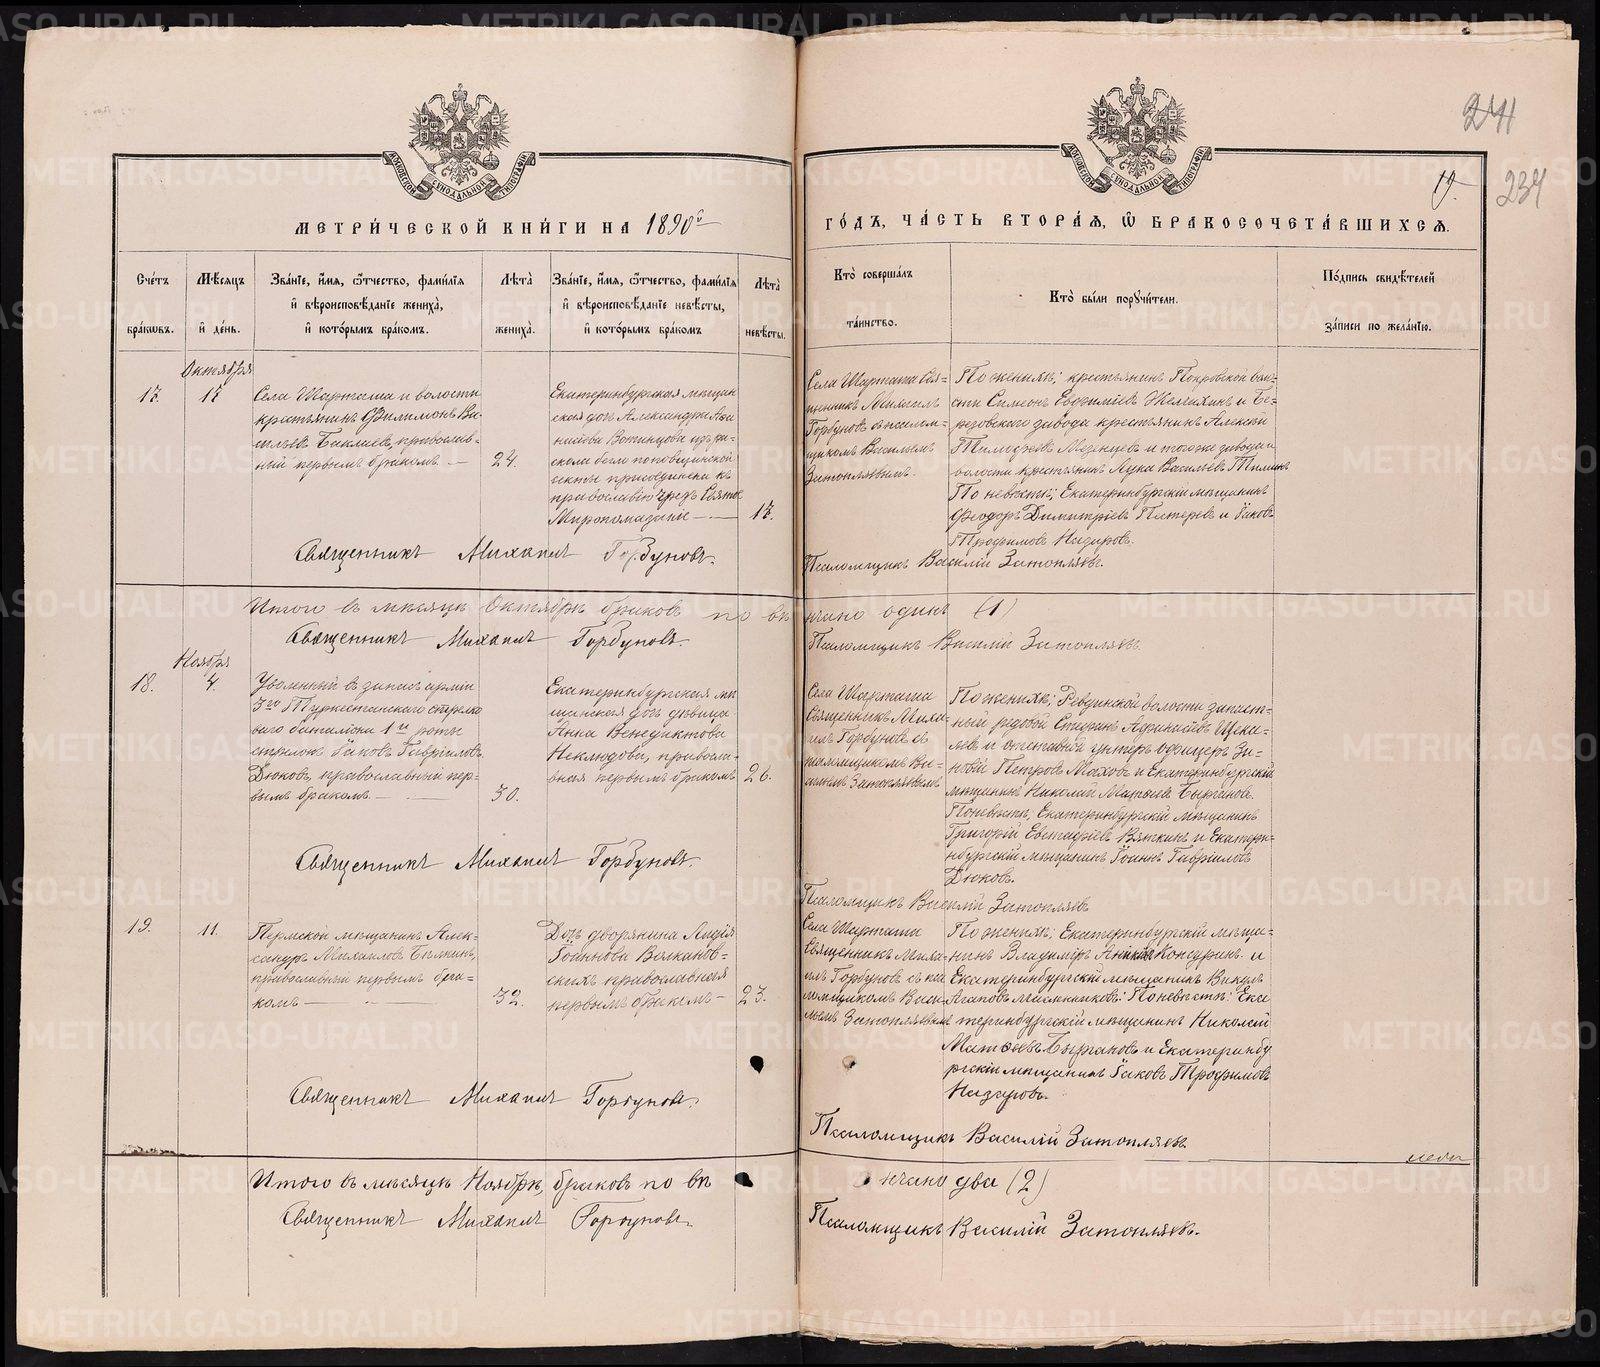 МЕТРИ́ЧЕСКОЙ КНИ́ГИ НА 1890й
ГО́ДЪ, ЧА́СТЬ ВТОРА́Ѧ, Ѽ БРАКОСОЧЕТА́ВШИХСѦ.
241
19.
234
Сче́тъ бра́ковъ.
Мѣ́сѧцъ и҆ де́нь.
Зва́нїе, и҆́мѧ, ѻ҆́тчество, фами́лїѧ и҆ вѣроисповѣ́данїе жениха̀, и҆ кото́рымъ бра́комъ.
Лѣ́та жениха̀.
Зва́нїе, и҆́мѧ, ѻ҆́тчество, фами́лїѧ и҆ вѣроисповѣ́данїе невѣ́сты, и҆ кото́рымъ бра́комъ
Лѣ́та невѣ́сты.
Кто̀ соверша́лъ та́инство.
Кто̀ бы́ли порꙋчи́тели.
По́дпись свидѣ́телей за́писи по жела́нїю.
Октября
17.
17.
Села Шарташа и волости
крестьянинъ Филимонъ Ва-
сильевъ Баклаевъ, православ-
ный первымъ бракомъ. —
24.
Екатеринбургская мѣщан
ская дочь Александра Афа
насіева Вотинцова изъ ра-
скола бѣгло поповщинской
секты присоединена къ
православію чрезъ Святое
Миропомазаніе —
17.
Села Шарташа Свя-
щенникъ Михаилъ
Горбуновъ съ псалом-
щикомъ Василіемъ
Затопляевымъ.
По женихѣ; крестьянинъ Покровской воло-
сти Симеонъ Евфиміевъ и Бе-
резовскаго завода крестьянинъ Алексѣй
Тимофеевъ Мезенцевъ и тогоже завода и
волости крестьянинъ Лука Васильевъ
По невѣстѣ; Екатеринбургскій мѣщанинъ
Феодоръ Димитріевъ и Іаковъ
Трофимовъ Назаровъ.
Священникъ Михаилъ Горбуновъ.
Псаломщикъ Василій Затопляевъ.
Итого въ мѣсяцѣ Октябрѣ браковъ повѣнчано одинъ (1)
Священникъ Михаилъ Горбуновъ.
Псаломщикъ Василій Затопляевъ.
Ноября
18.
4.
Уволенный въ запасъ арміи
3го Туркестанскаго стрелко
ваго баталіона 1й роты
стрѣлокъ Іаковъ Гавріиловъ
Дюковъ, православный пер-
вымъ бракомъ —
30.
Екатеринбургская мѣ
щанская дочь дѣвица
Анна Венедиктова
Неклюдова, православ-
ная первымъ бракомъ
26.
Села Шарташа
Священникъ Миха-
илъ Горбуновъ съ
псаломщикомъ Ва-
силіемъ Затопляевымъ
По женихѣ; Ревдинской волости запас-
ный рядовой Стефанъ Афанасіевъ
и отставной унтеръ офицеръ Зи-
новій Петровъ Маховъ и Екатеринбургскій
мѣщанинъ Николай Матѳіевъ Бызгановъ.
По невѣстѣ, Екатеринбургскій мѣщанинъ
Григорій Евстафіевъ Вяткинъ и Екатери-
нбургскій мѣщанинъ Іоаннъ Гавріиловъ
Дюковъ.
Священникъ Михаилъ Горбуновъ.
Псаломщикъ Василій Затопляевъ
19.
11.
Пермской мѣщанинъ Алек-
сандръ Михаиловъ
православный первымъ бра-
комъ —
32.
Дочь дворянина Лидія
Іоаннова
православная
первымъ бракомъ —
23.
Села Шарташа
Священникъ Миха-
илъ Горбуновъ съ пса
ломщикомъ Васи-
льемъ Затопляевымъ
По женихѣ; Екатеринбургскій мѣща-
нинъ Владиміръ и
Екатеринбургскій мѣщанинъ
Агаповъ: По невѣстѣ: Ека
теринбургскій мѣщанинъ Николай
Матѳіевъ Бызгановъ и Екатеринбу
ргскій мѣщанинъ Іаковъ Трофимовъ
Назаровъ.
Священникъ Михаилъ Горбуновъ.
Псаломщикъ Василій Затопляевъ
Итого въ мѣсяцѣ Ноябрѣ, браковъ повѣнчано два (2)
Священникъ Михаилъ Горбуновъ.
Псаломщикъ Василій Затопляевъ.
METRIKI.GASO-URAL.RU